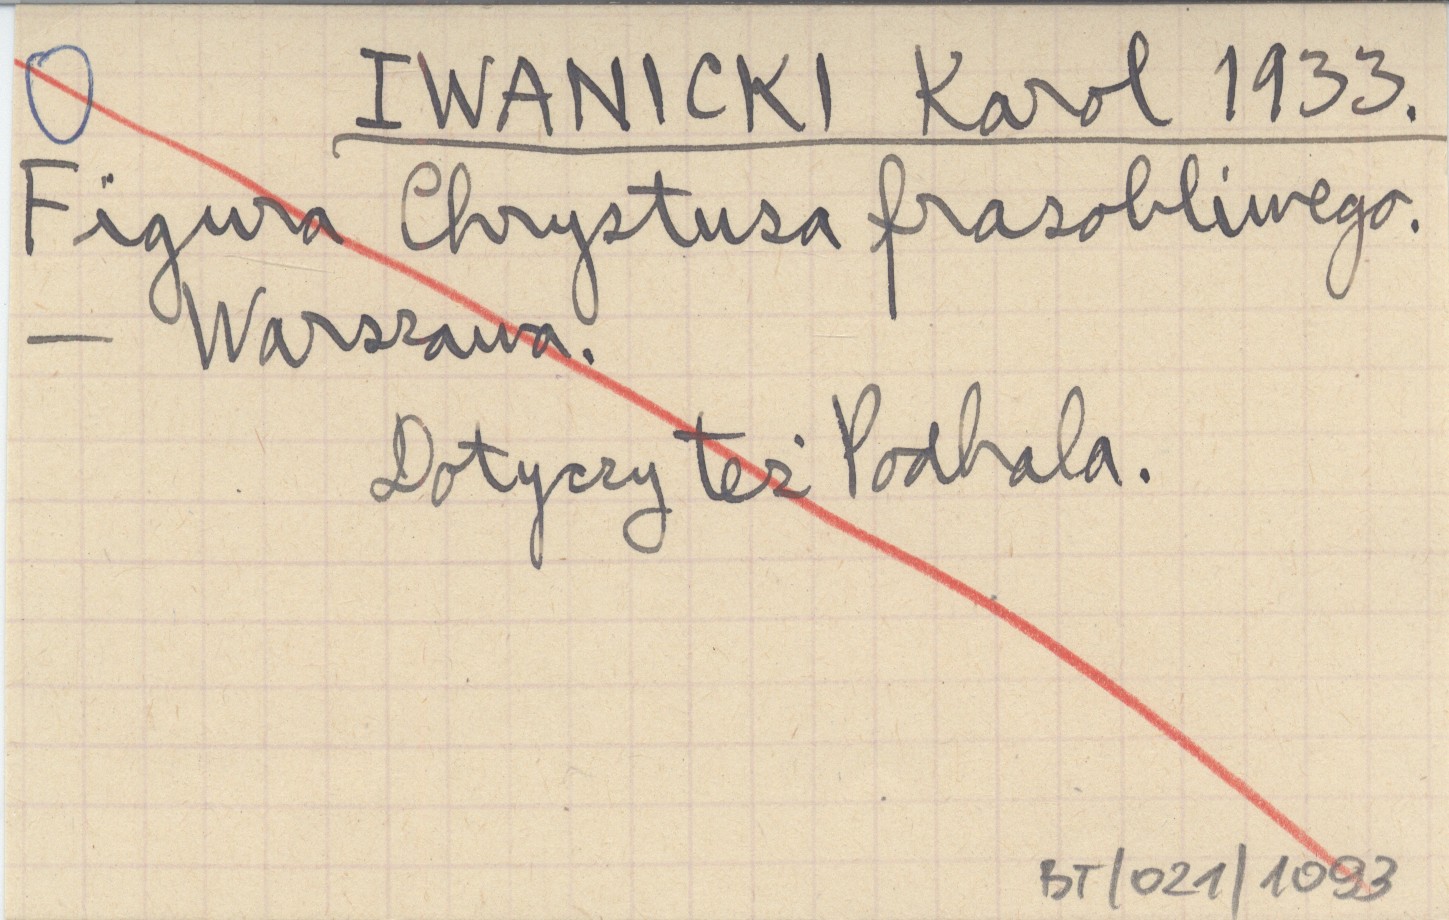 O IWANICKI Karol 1933.
Figura Chrystusa frasobliwego.
— Warszawa.
Dotyczy też Podhala.
BT/021/1093